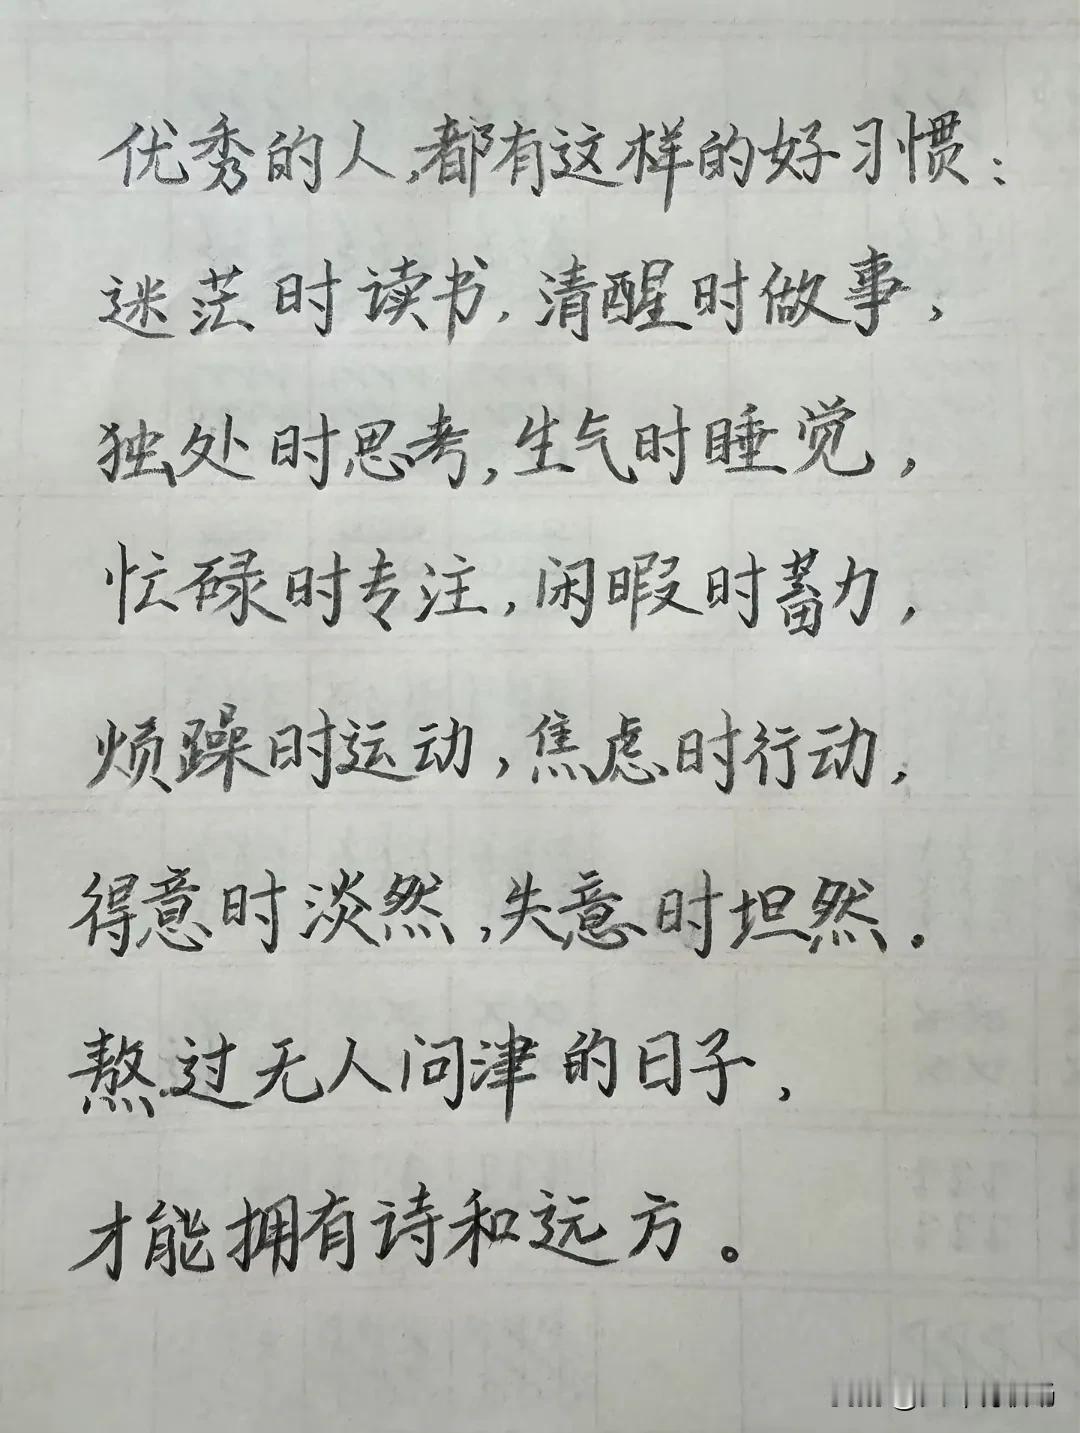 优秀的人,都有这样的好习惯:
迷茫时读书,清醒时做事,
独处时思考,生气时睡觉,
忙碌时专注,闲暇时蓄力,
烦躁时运动,焦虑时行动,
得意时淡然,失意时坦然。
熬过无人问津的日子,
才能拥有诗和远方。